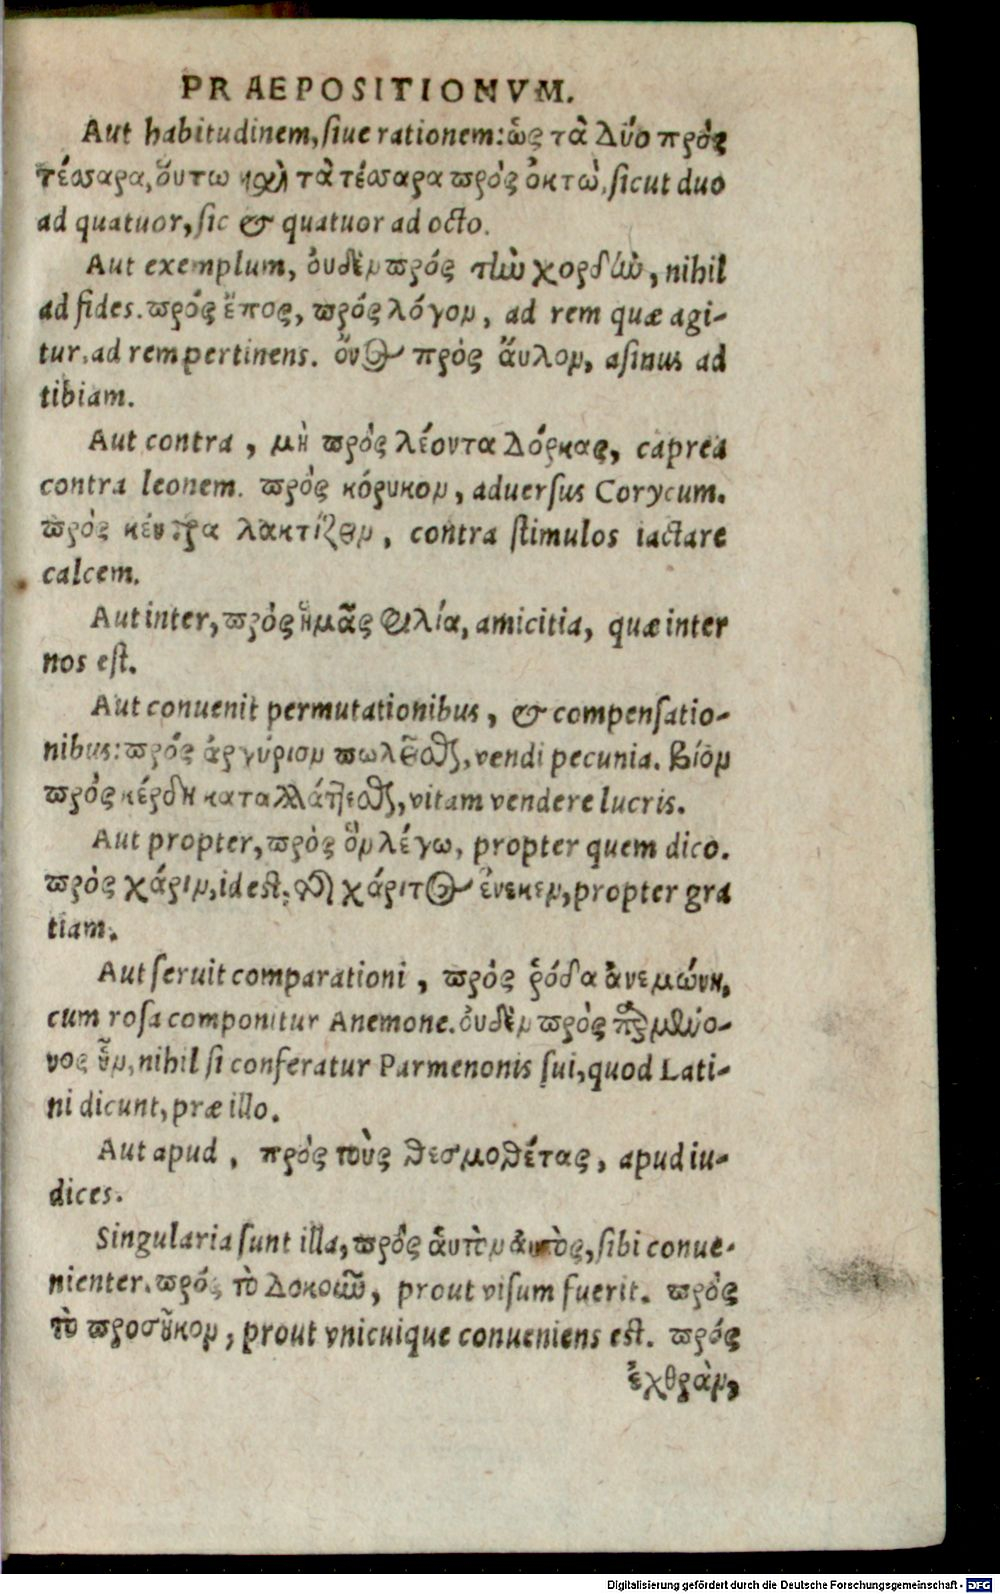 PRAEPOSITIONVM.
Aut habitudinem, siue rationem: ὡς τὰ δύο πρὸς
τέσσαρα, ὅυτω καὶ τὰ τέσσαρα πρὸς ὀκτὼ, sicut duo
ad quatuor, sic & quatuor ad octo.
Aut exemplum, ὀυδὲν πρός τὴν χορδὴν, nihil
ad fides. πρός ἔπος, πρός λόγον, ad rem quæ agi-
tur, ad rem pertinens. ὄνος πρὸς ἄυλον, asinus ad
tibiam.
Aut contra, μὴ πρὸς λέοντα δόρκας, caprea
contra leonem. πρὸς κόρυκον, aduersus Corycum.
πρὸς κέντρα λακτίζειν, contra stimulos iactare
calcem.
Aut inter, πρὸς ἡμᾶς φιλία, amicitia, quæ inter
nos est.
Aut conuenit permutationibus, & compensatio-
nibus: πρός ἀργύριον πωλεῖσθαι, vendi pecunia. βίον
πρὸς κέρδη καταλλάττεσθαι, vitam vendere lucris.
Aut propter, πρὸς ὃν λέγω, propter quem dico.
πρὸς χάριν, id est, χάριτος ἕνεκεν, propter gra
tiam.
Aut seruit comparationi, πρὸς ῥόδα ἀνεμώνη,
cum rosa componitur Anemone. ὀυδὲν πρὸς
νος ὗν, nihil si conferatur Parmenonis sui, quod Lati-
ni dicunt, præ illo.
Aut apud, πρὸς τοὺς θεσμοθέτας, apud iu-
dices.
Singularia sunt illa, πρὸς ἁυτὸν ἀυτὸς, sibi conue-
nienter. πρός τὸ δοκοῦν, prout visum fuerit. πρὸς
τὸ προσῆκον, prout vnicuique conueniens est. πρός
ἐχθρὰν,
Digitalisierung gefördert durch die Deutsche Forschungsgemeinschaft - DFG